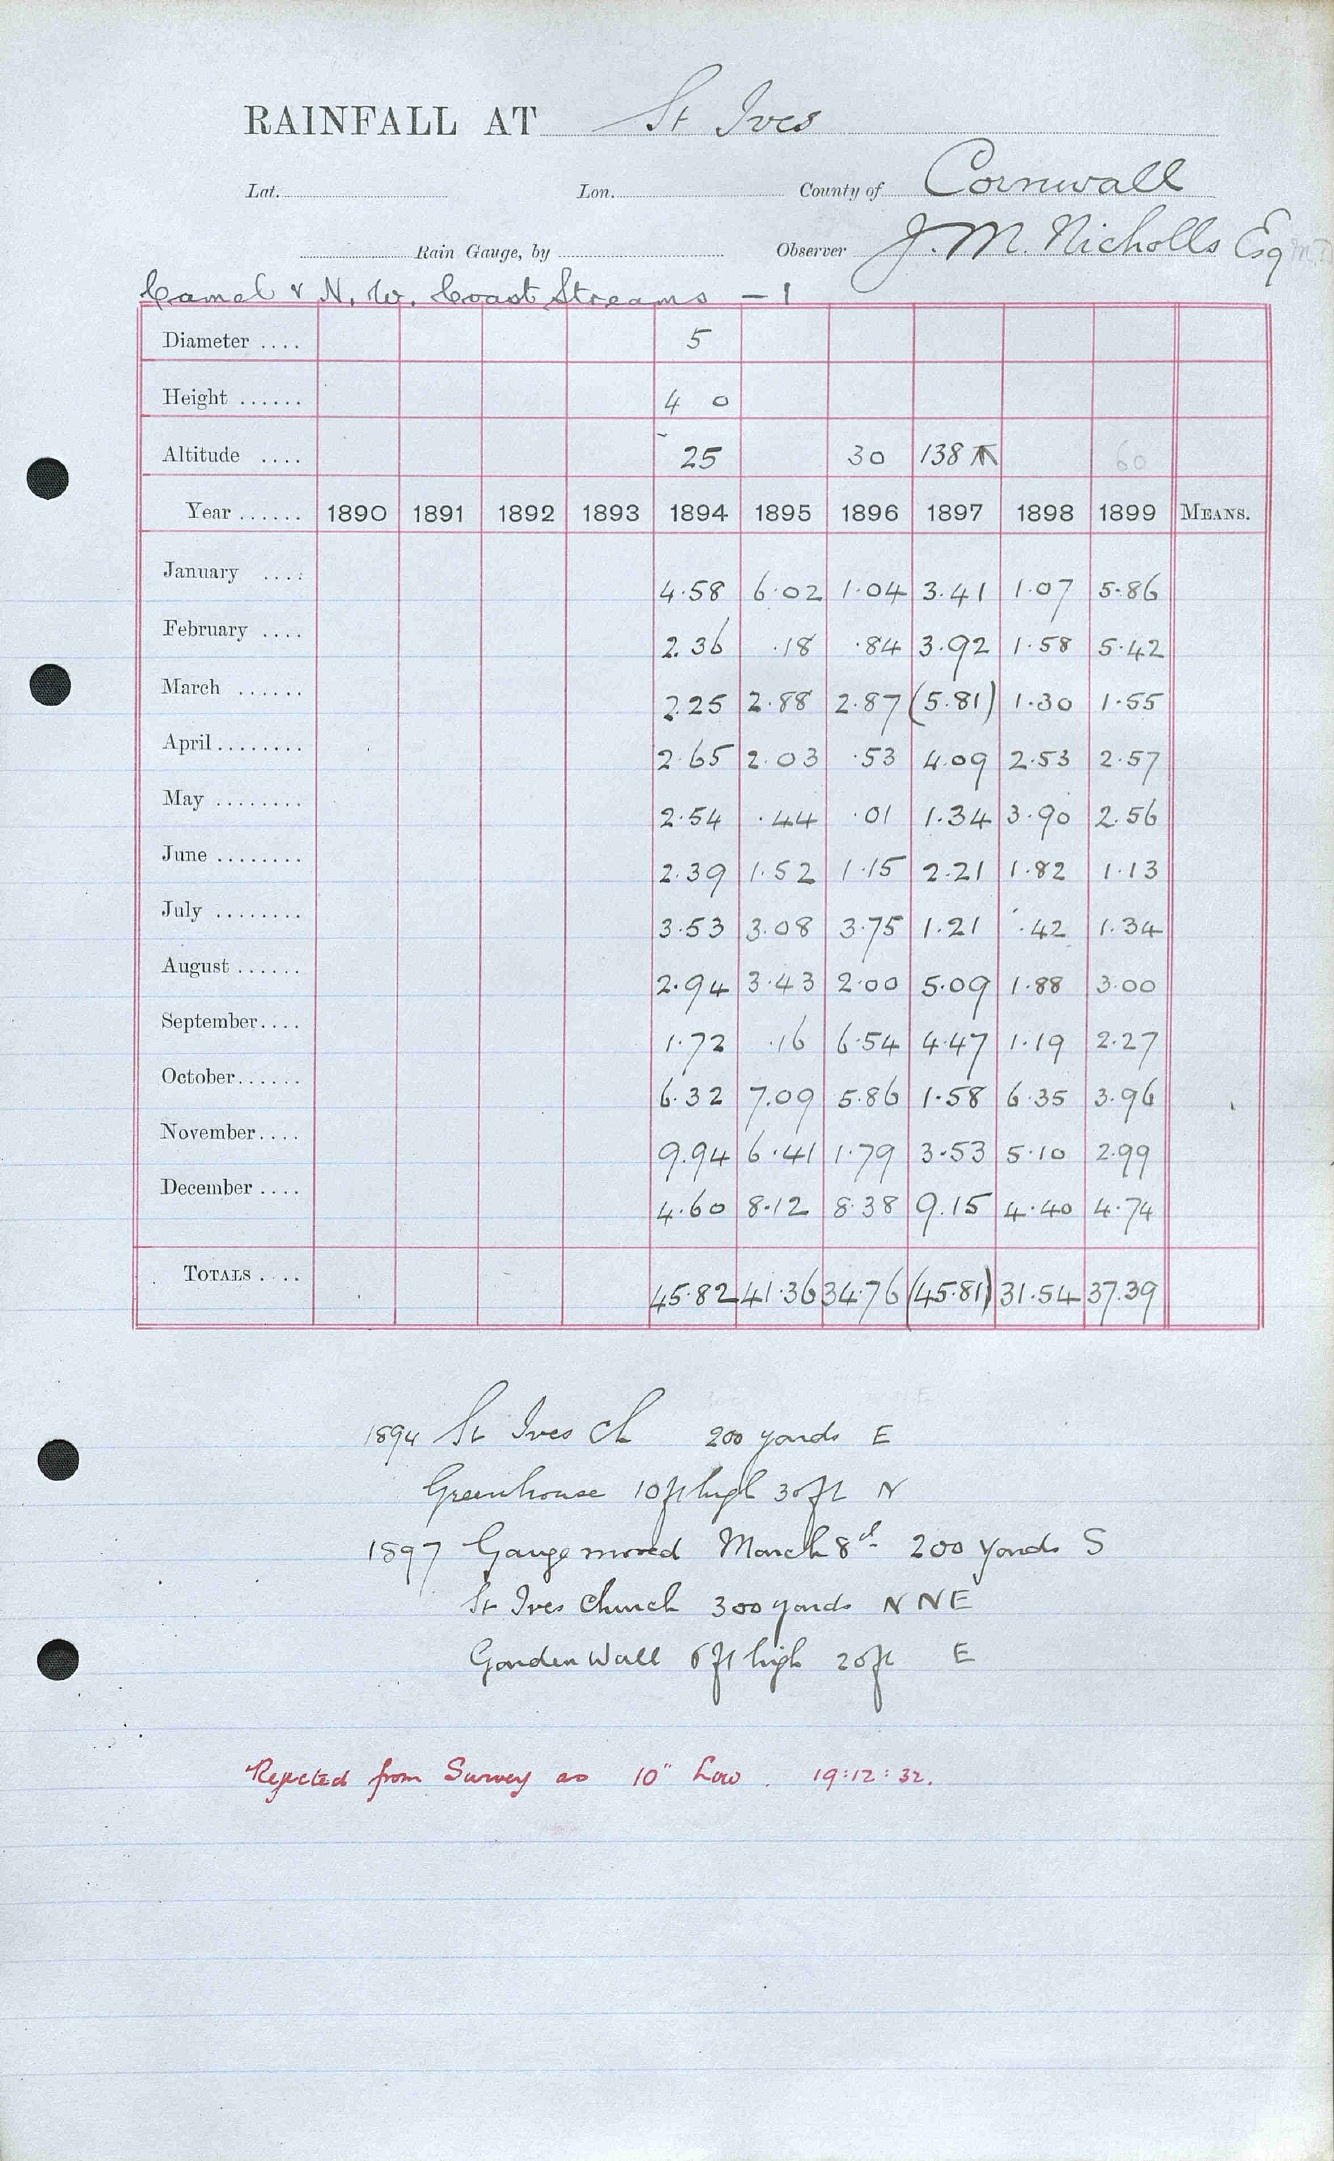 RAINFALL AT St Ives
Lat. Lon. County of Cornwall
Rain Gauge, by Observer J. M. Nicholls Esq
Camel & N. W. Coast Streams – 1
Diameter .... 5
Height ...... 4 0
Altitude .... 25 30 138 60
Year ...... 1890 1891 1892 1893 1894 1895 1896 1897 1898 1899 MEANS.
January .... 4.58 6.02 1.04 3.41 1.07 5.86
February .... 2.36 .18 .84 3.92 1.58 5.42
March ...... 2.25 2.88 2.87 (5.81) 1.30 1.55
April ........ 2.65 2.03 .53 4.09 2.53 2.57
May ........ 2.54 .44 .01 1.34 3.90 2.56
June ........ 2.39 1.52 1.15 2.21 1.82 1.13
July ........ 3.53 3.08 3.75 1.21 .42 1.34
August ...... 2.94 3.43 2.00 5.09 1.88 3.00
September.... 1.72 .16 6.54 4.47 1.19 2.27
October...... 6.32 7.09 5.86 1.58 6.35 3.96
November.... 9.94 6.41 1.79 3.53 5.10 2.99
December .... 4.60 8.12 8.38 9.15 4.40 4.74
TOTALS .... 45.82 41.36 34.76 (45.81) 31.54 37.39
1894 St Ives Ch 200 yards E
Greenhouse 10 ft high 30 ft N
1897 Gauge moved March 8th 200 yards S
St Ives Church 300 yards N N E
Garden Wall 6 ft high 20 ft E
Rejected from Survey as 10" Low. 19:12:32.